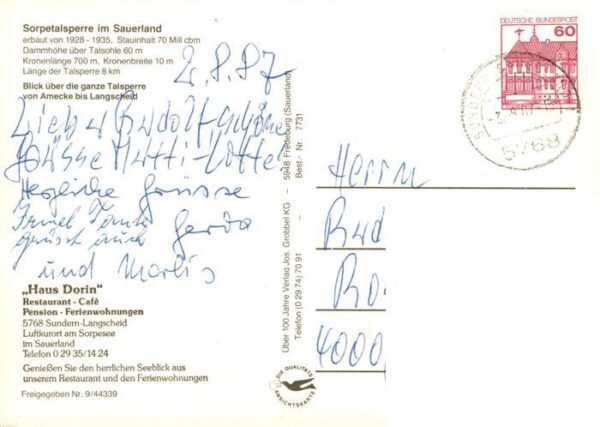 Sorpetalsperre im Sauerland
erbaut von 1928 - 1935, Stauinhalt 70 Mill cbm
Dammhöhe über Talsohle 60 m
Kronenlänge 700 m, Kronenbreite 10 m
Länge der Talsperre 8 km
Blick über die ganze Talsperre
von Amecke bis Langscheid
2.8.87
Lieber Rudolf schöne
Grüsse Mutti - Lotte
Herzliche Grüsse
Gerda
und Marlis
„Haus Dorin"
Restaurant - Café
Pension - Ferienwohnungen
5768 Sundern-Langscheid
Luftkurort am Sorpesee
im Sauerland
Telefon 0 29 35/14 24
Genießen Sie den herrlichen Seeblick aus
unserem Restaurant und den Ferienwohnungen
Freigegeben Nr. 9/44339
Über 100 Jahre Verlag Jos. Grobbel KG - 5948 Fredeburg (Sauerland)
Telefon (0 29 74) 70 91 Best.- Nr. 7731
DIE QUALITÄTS
ANSICHTSKARTE
DEUTSCHE BUNDESPOST
60
5768
Herrn
Rud
Ro
4000